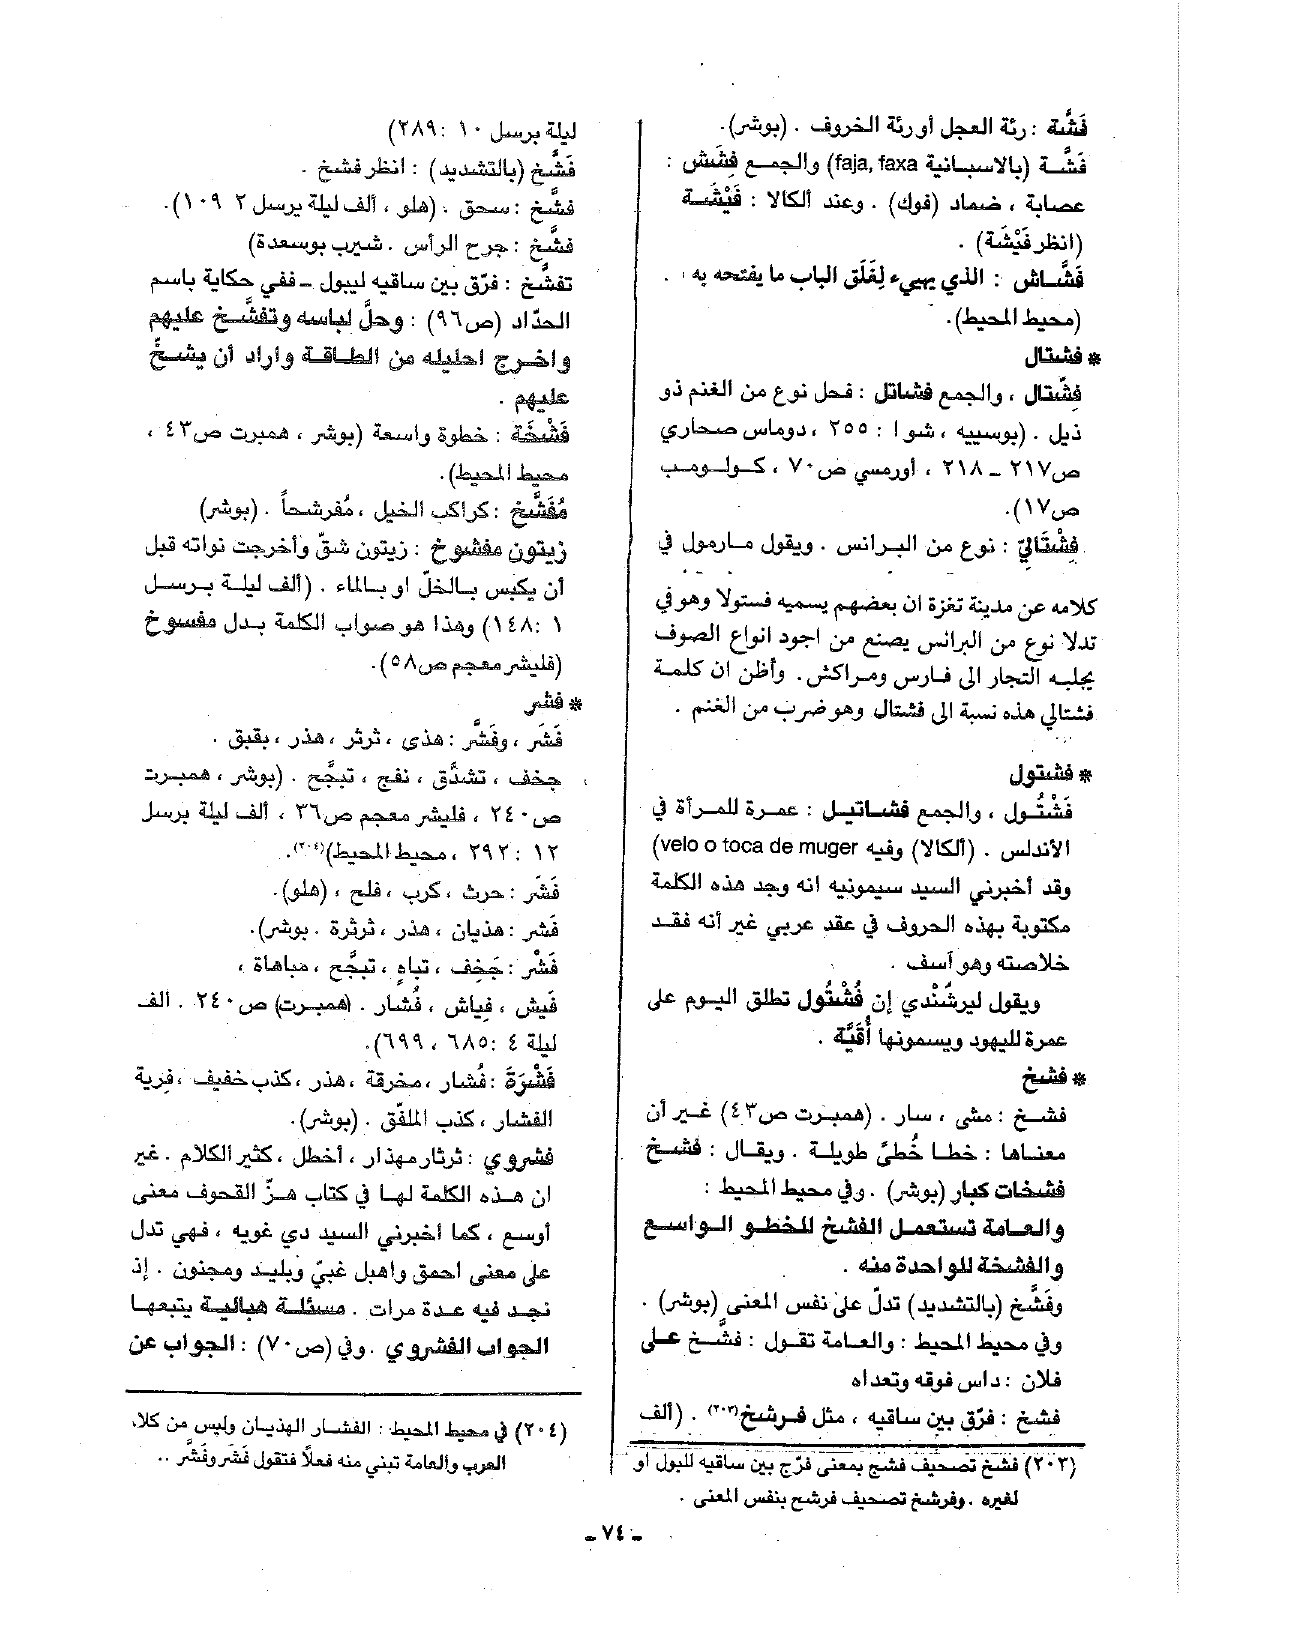 فَشَّة : رئة العجل أو رئة الخروف . (بوشر).
فَشَّة (بالاسبانية faja, faxa) والجمع فِشَش :
عصابة ، ضماد (فوك) . وعند ألكالا : فَيْشَة
(انظر فَيْشَة) .
فَشَّاش : الذي يهييء لِغَلَق الباب ما يفتحه به .
(محيط المحيط).
* فشتال
فِشْتال ، والجمع فشاتل : فحل نوع من الغنم ذو
ذيل . (بوسييه ، شوا ١ : ٢٥٥ ، دوماس صحاري
ص٢١٧ ـ ٢١٨ ، أورمسي ص٧٠ ، كولومب
ص١٧).
فِشْتاليّ : نوع من البرانس . ويقول مارمول في
كلامه عن مدينة تغزة ان بعضهم يسميه فستولا وهو في
تدلا نوع من البرانس يصنع من اجود انواع الصوف
يجلبه التجار الى فارس ومراكش. وأظن ان كلمة
فشتالي هذه نسبة الى فشتال وهو ضرب من الغنم .
* فشتول
فَشْتُول ، والجمع فشاتيل : عمرة للمرأة في
الأندلس . (ألكالا) وفيه velo o toca de muger)
وقد أخبرني السيد سيمونيه انه وجد هذه الكلمة
مكتوبة بهذه الحروف في عقد عربي غير أنه فقد
خلاصته وهو آسف .
ويقول ليرشندي إن فُشْتُول تطلق اليوم على
عمرة لليهود ويسمونها أُقيَّة .
* فشخ
فشخ : مشى ، سار . (همبرت ص٤٣) غير أن
معناها : خطا خُطىً طويلة . ويقال : فشخ
فشخات كبار (بوشر) . وفي محيط المحيط :
والعامة تستعمل الفشخ للخطو الواسع
والفشخة للواحدة منه .
وفَشَّخ (بالتشديد) تدلّ على نفس المعنى (بوشر) .
وفي محيط المحيط : والعامة تقول : فشَّخ على
فلان : داس فوقه وتعداه
فشخ : فرّق بين ساقيه ، مثل فرشخ(٢٠٣) . (ألف
(٢٠٣) فشخ تصحيف فشج بمعنى فرّج بين ساقيه للبول او
لغيره . وفرشخ تصحيف فرشح بنفس المعنى .
ليلة برسل ١٠ : ٢٨٩)
فَشَّخ (بالتشديد) : انظر فشخ .
فشَّخ : سحق . (هلو ، ألف ليلة برسل ٢ ١٠٩).
فشَّخ : جرح الرأس . شيرب بوسعدة)
تفشَّخ : فرّق بين ساقيه ليبول ـ ففي حكاية باسم
الحدّاد (ص٩٦) : وحلَّ لباسه وتفشَّخ عليهم
واخرج احليله من الطاقة واراد أن يشخّ
عليهم .
فَشْخَة : خطوة واسعة (بوشر ، همبرت ص٤٣ ،
محيط المحيط).
مُفَشَّخ : كراكب الخيل ، مُفرشحاً . (بوشر)
زيتون مفشوخ : زيتون شقّ وأخرجت نواته قبل
أن يكبس بالخلّ او بالماء . (ألف ليلة برسل
١ :١٤٨) وهذا هو صواب الكلمة بدل مفسوخ
(فليشر معجم ص٥٨).
* فشر
فَشَر ، وفَشَّر : هذى ، ثرثر ، هذر ، بقبق .
جخف ، تشدَّق ، نفج ، تبجَّح . (بوشر ، همبرت
ص٢٤٠ ، فليشر معجم ص٣٦ ، ألف ليلة برسل
١٢ : ٢٩٢ ، محيط المحيط)(٢٠٤).
فَشَر : حرث ، كرب ، فلح ، (هلو).
فَشَر : هذيان ، هذر ، ثرثرة . بوشر).
فَشْر : جَخف ، تباهٍ ، تبجُّح ، مباهاة ،
فَيش ، فياش ، فُشار . (همبرت) ص٢٤٠ . ألف
ليلة ٤ :٦٨٥ ، ٦٩٩).
فَشْرَة : فُشار ، مخرقة ، هذر ، كذب خفيف ، فرية
الفشار ، كذب الملفّق . (بوشر).
فشروي : ثرثار مهذار ، أخطل ، كثير الكلام . غير
ان هذه الكلمة لها في كتاب هزّ القحوف معنى
أوسع ، كما اخبرني السيد دي غويه ، فهي تدل
على معنى احمق واهبل غبيّ وبليد ومجنون . إذ
نجد فيه عدة مرات . مسئلة هبالية يتبعها
الجواب الفشروي . وفي (ص٧٠) : الجواب عن
(٢٠٤) في محيط المحيط : الفشار الهذيان وليس من كلام
العرب والعامة تبني منه فعلاً فتقول فَشَر وفَشَّر ..
ـ ٧٤ ـ